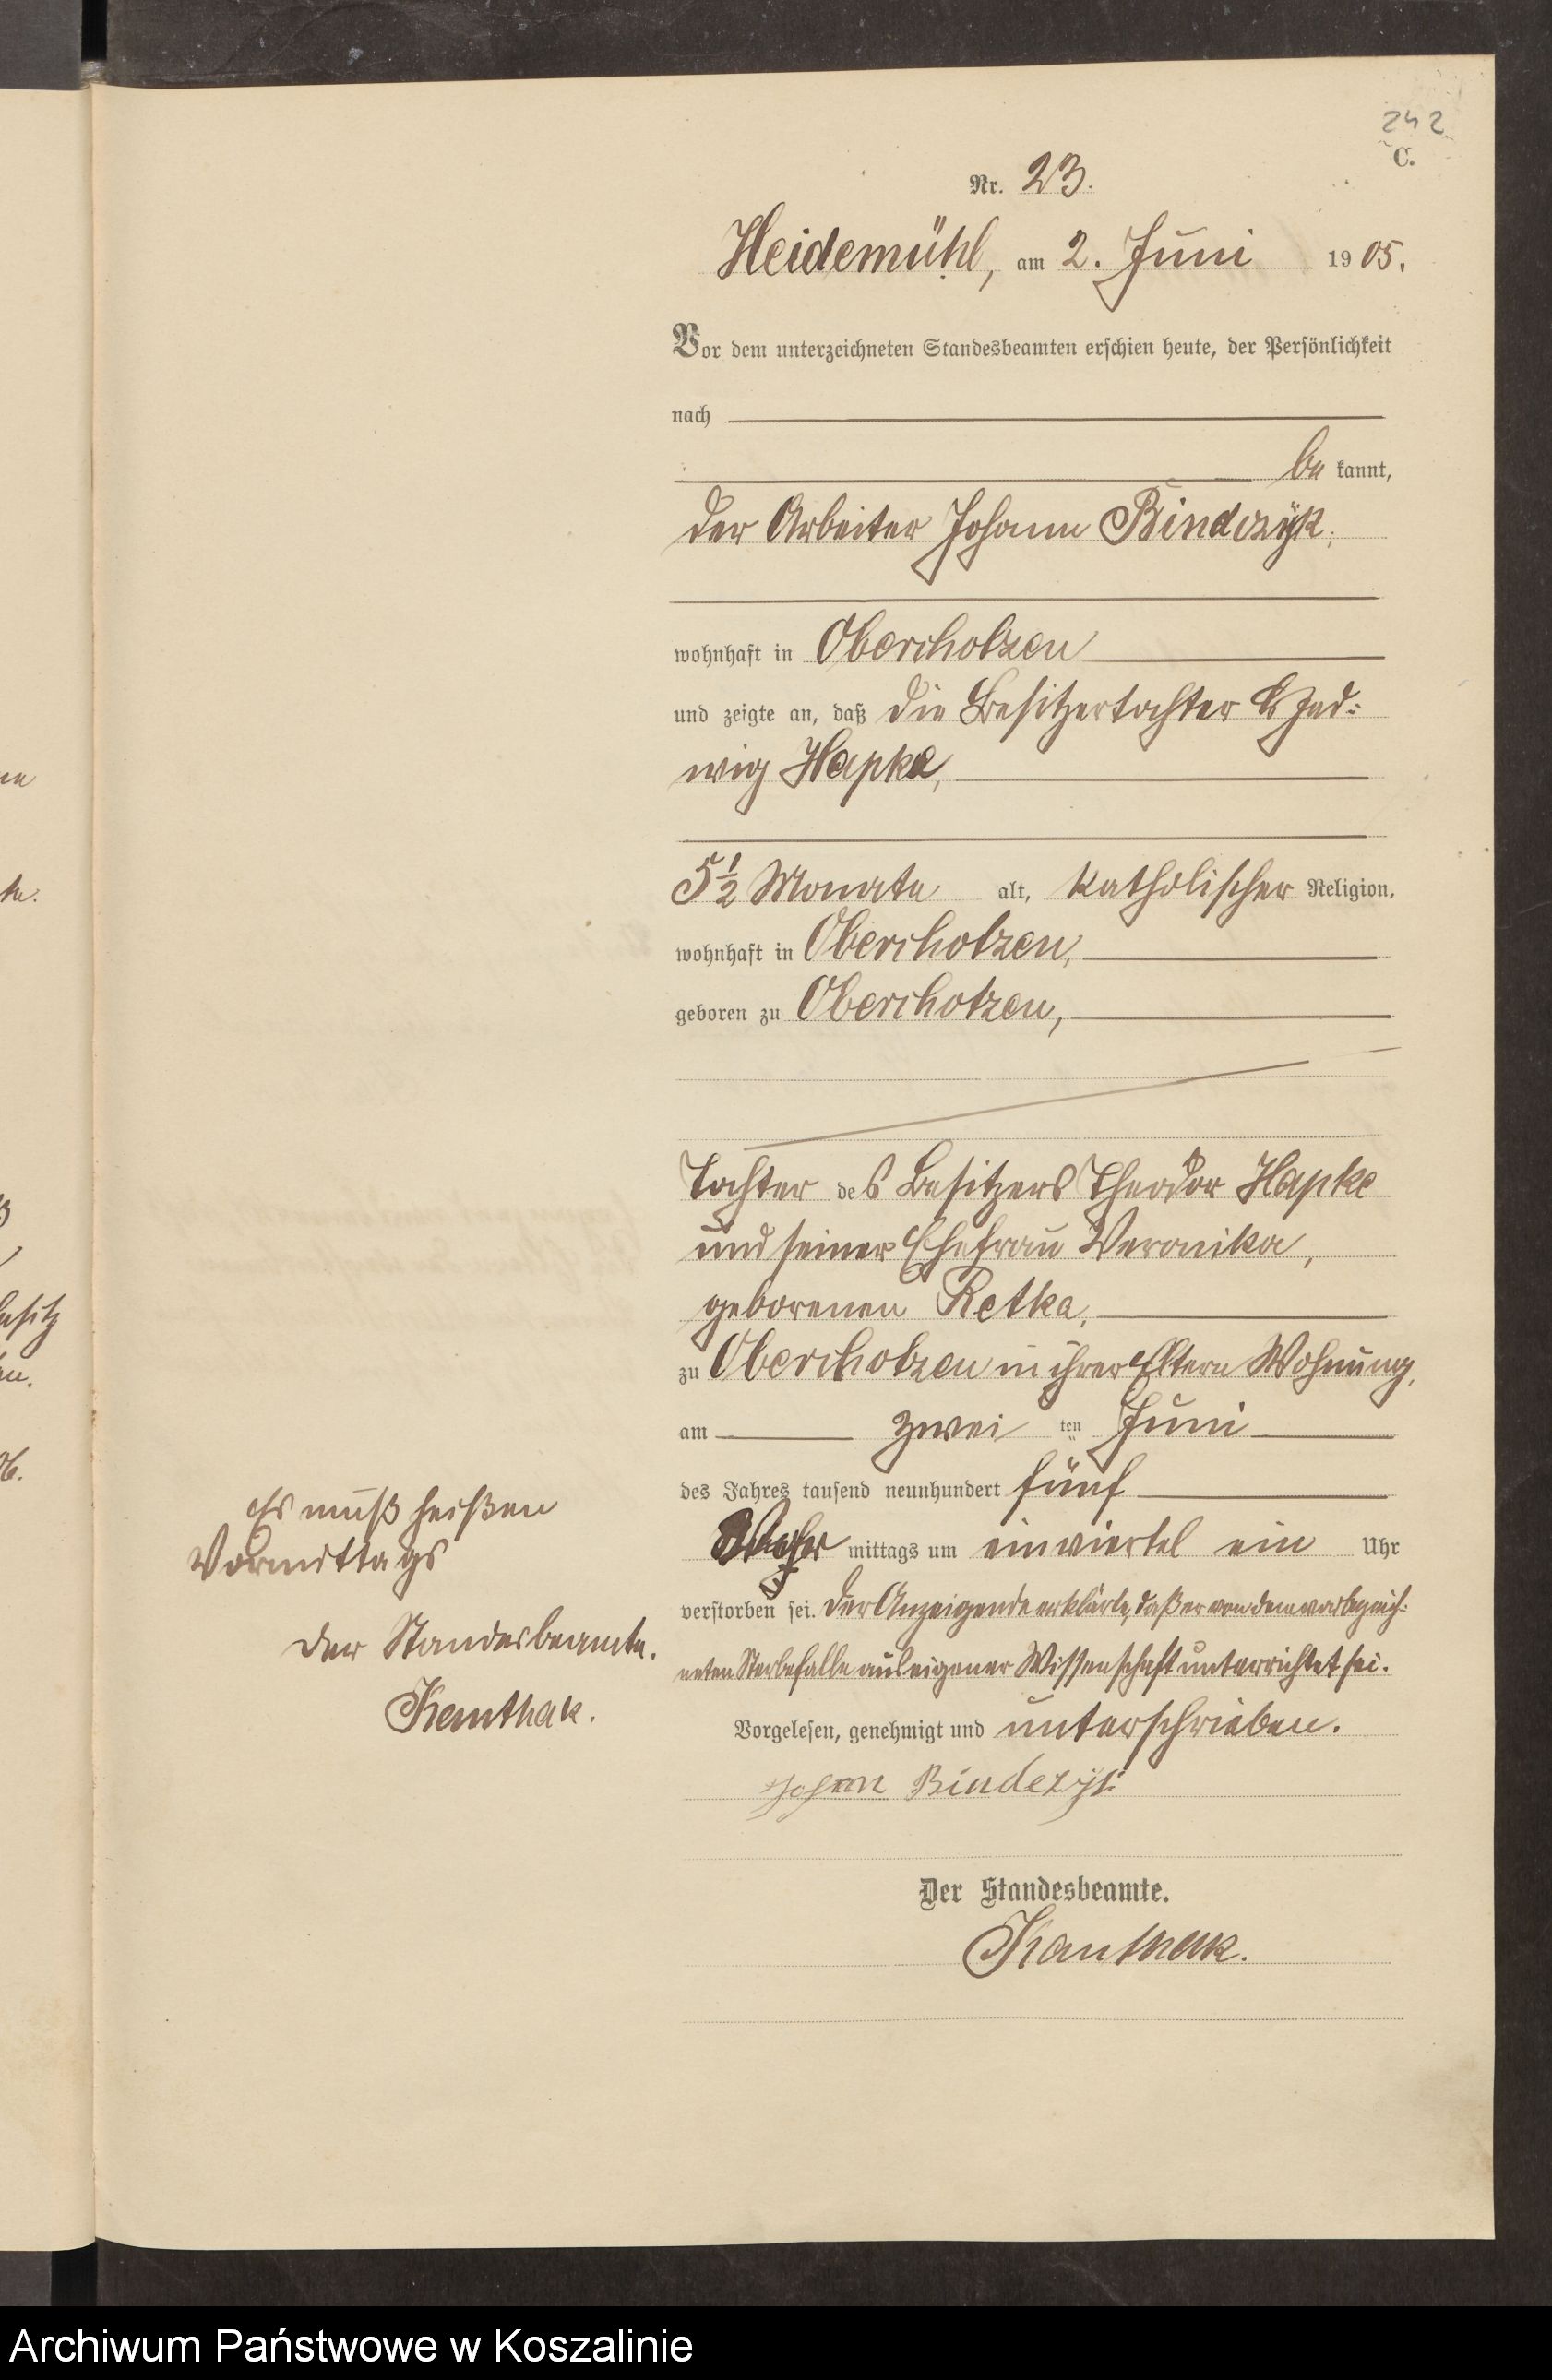 242
C.
Nr. 23.
Heidemühl, am 2. Juni 1905.
Vor dem unterzeichneten Standesbeamten erschien heute, der Persönlichkeit
nach
be kannt,
der Arbeiter Johann Bindczÿk,
wohnhaft in Oberchotzen
und zeigte an, daß die Besitzertochter Hed-
wig Hapke,
5 1/2 Monate alt, katholischer Religion,
wohnhaft in Oberchotzen,
geboren zu Oberchotzen,
Tochter des Besitzers Theodor Hapke
und seiner Ehefrau Veronika,
geborenen Retka,
zu Oberchotzen in ihrer Eltern Wohnung,
am zwei ten Juni
des Jahres tausend neunhundert fünf
mittags um einviertel ein Uhr
verstorben sei. Der Anzeigende erklärte, daß er von dem vorbezeich-
neten Sterbefalle aus eigener Wissenschaft unterrichtet sei.
Vorgelesen, genehmigt und unterschrieben.
Johann Bindczÿk
Der Standesbeamte.
Kanthak.
Es muß heißen
Vormittags
Der Standesbeamte.
Kanthak.
Archiwum Państwowe w Koszalinie